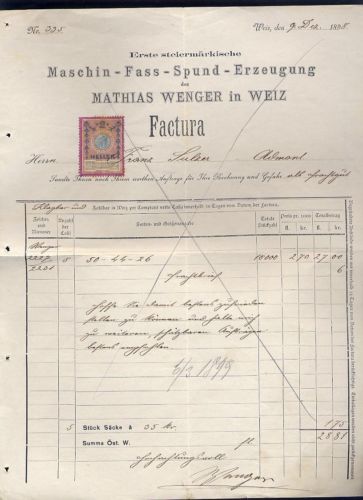 No. 335 Weiz, den 9. Dez. 1898
Erste steiermärkische
Maschin-Fass-Spund-Erzeugung
des
MATHIAS WENGER in WEIZ
Factura
HELLER
Herrn Franz Sulzer Admont
Sandte Ihnen nach Ihrem werthen Auftrage für Ihre Rechnung und Gefahr als Frachtgut
Klagbar und zahlbar in Weiz per Comptant netto Cassa innerhalb 30 Tagen vom Datum der Factura.
Zeichen und Nummer Anzahl der Colli Sorten- und Größenangabe Totale Stückzahl Preis pr. 1000 Totalbetrag
fl. kr. fl. kr.
Wenger
2227
2231 5 50-44-26 10000 2 70 27.00
Frachtbrief 6
Hoffe Sie damit bestens zufrieden
stellen zu können und halte mich
zu weiteren, schätzbaren Aufträgen
bestens empfohlen
6/3 1899
5 Stück Säcke à 35 kr. 1 75
Summa Öst. W. fl. 28 81
Hochachtungsvoll
Wenger